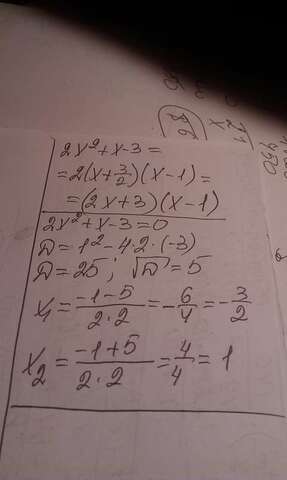 2x² + x - 3 =
= 2(x + 3/2)(x - 1) =
= (2x + 3)(x - 1)
2x² + x - 3 = 0
D = 1² - 4·2·(-3)
D = 25; √D = 5
x₁ = (-1-5)/(2·2) = -6/4 = -3/2
x₂ = (-1+5)/(2·2) = 4/4 = 1